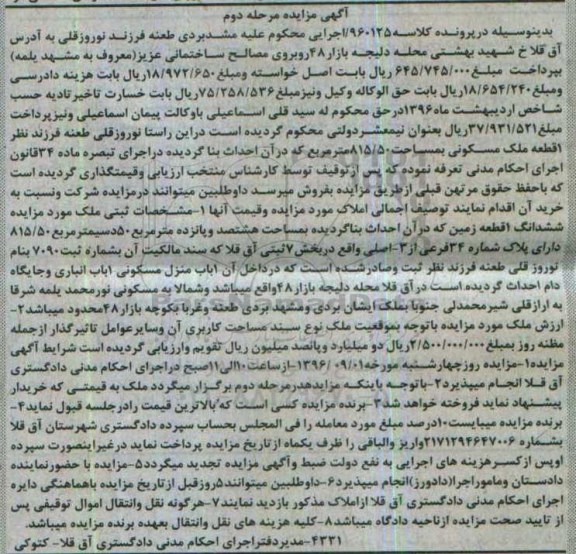 آگهی مزایده مرحله دوم
بدینوسیله درپرونده کلاسه ۹۶۰۱۳۵/اجرایی محکوم علیه مشدبردی طعنه فرزند نوروزقلی به آدرس
آق قلا خ شهید بهشتی محله دلیجه بازار ۴۸روبروی مصالح ساختمانی عزیز(معروف به مشهد یلمه)
بپرداخت مبلغ ۶۴۵/۷۴۵/۰۰۰ ریال بابت اصل خواسته ومبلغ ۱۸/۹۷۲/۶۵۰ریال بابت هزینه دادرسی
ومبلغ ۱۸/۶۵۴/۲۴۰ریال بابت حق الوکاله وکیل ونیزمبلغ ۷۵/۲۵۸/۵۳۶ریال بابت خسارت تاخیرتادیه حسب
شاخص اردیبهشت ماه۱۳۹۶درحق محکوم له سید قلی اسماعیلی باوکالت پیمان اسماعیلی ونیزپرداخت
مبلغ ۳۷/۹۳۱/۵۲۱ریال بعنوان نیمعشردولتی محکوم گردیده است دراین راستا نوروزقلی طعنه فرزند نظر
۱قطعه ملک مسکونی بمساحت۸۱۵/۵۰مترمربع که درآن احداث بنا گردیده دراجرای تبصره ماده ۳۴قانون
اجرای احکام مدنی تعرفه نموده که پس ازتوقیف توسط کارشناس منتخب ارزیابی وقیمتگذاری گردیده است
که باحفظ حقوق مرتهن قبلی ازطریق مزایده بفروش میرسد داوطلبین میتوانند درمزایده شرکت ونسبت به
خرید آن اقدام نمایند توصیف اجمالی املاک مورد مزایده وقیمت آنها ۱-مشخصات ثبتی ملک مورد مزایده
ششدانگ ۱قطعه زمین که درآن احداث بناگردیده بمساحت هشتصد وپانزده مترمربع۵۰دسیمترمربع ۸۱۵/۵۰
دارای پلاک شماره ۳۴فرعی از۳-اصلی واقع دربخش ۷ثبتی آق قلاکه سند مالکیت آن بشماره ثبت۷۰۹۰ بنام
نوروز قلی طعنه فرزند نظر ثبت وصادرشده است که درداخل آن ۱باب منزل مسکونی ۱باب انباری وجایگاه
دام احداث گردیده است درآق قلا محله دلیجه بازار۴۸واقع میباشد وشمالا به مسکونی نورمحمد یلمه شرقا
به ارازقلی شیرمحمدلی جنوبا بملک ایشان بردی ومشهد بردی طعنه وغربا بکوچه بازار۴۸محدود میباشد۲-
ارزش ملک مورد مزایده باتوجه بموقعیت ملک نوع سند مساحت کاربری آن وسایرعوامل تاثیرگذار ازجمله
مظنه روز بمبلغ۲/۵۰۰/۰۰۰/۰۰۰ریال دو میلیارد وپانصد میلیون ریال تقویم وارزیابی گردیده است شرایط آگهی
مزایده۱-مزایده روزچهارشنبه مورخه ۱۳۹۶/۰۹/۰۱-ازساعت۱۰الی۱۱صبح دراجرای احکام مدنی دادگستری
آق قلا انجام میپذیرد۲-باتوجه باینکه مزایدهدرمرحله دوم برگزار میگردد ملک به قیمتی که خریدار
پیشنهاد نماید فروخته خواهد شد۳-برنده مزایده کسی است که بالاترین قیمت رادرجلسه قبول نماید۴-
برنده مزایده میبایست۱۰درصد مبلغ مورد معامله را فی المجلس بحساب سپرده دادگستری شهرستان آق قلا
بشماره ۲۱۷۱۲۹۴۶۴۷۰۰۶واریز والباقی را ظرف یکماه ازتاریخ مزایده پرداخت نماید درغیراینصورت سپرده
اوپس ازکسرهزینه های اجرایی به نفع دولت ضبط وآگهی مزایده تجدید میگردد۵-مزایده با حضورنماینده
دادستان وماموراجرا(دادورز)انجام میپذیرد۶-داوطلبین میتوانند۵روزقبل ازتاریخ مزایده باهماهنگی دایره
اجرای احکام مدنی دادگستری آق قلا ازاملاک مذکور بازدید نمایند۷-هرگونه نقل وانتقال اموال توقیفی پس
از تایید صحت مزایده ازناحیه دادگاه میباشد۸-کلیه هزینه های نقل وانتقال بعهده برنده مزایده میباشد.
۴۳۳۱-مدیردفتراجرای احکام مدنی دادگستری آق قلا- کتوکی